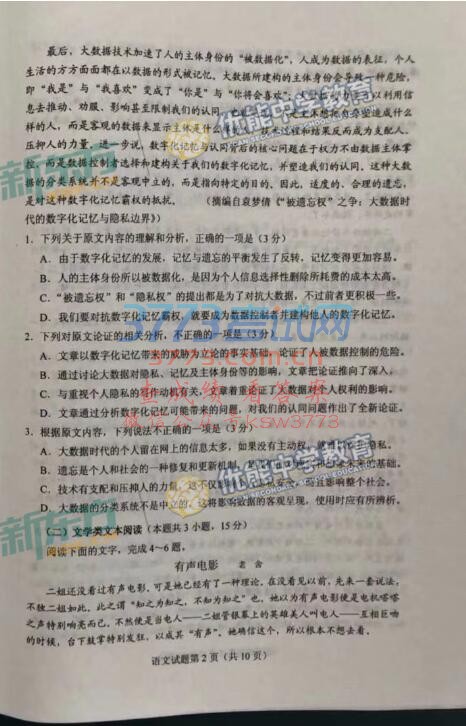 最后，大数据技术加速了人的主体身份的“被数据化”，人成为数据的表征，个人
生活的方方面面都在以数据的形式被记忆。大数据所建构的主体身份会导致一种危险，
即“我是”与“我喜欢”变成了“你是”与“你将会喜欢”；
以利用信
息去推动、劝服、影响甚至限制我们的认同。
不想把自身塑造成什么
样的人，而是客观的数据来显示主体是什么
技术过程和结果反而成为支配人、
压抑人的力量。进一步说，数字化记忆与认同背后的核心问题在于权力不由数据主体掌
控，而是数据控制者选择和建构关于我们的数字化记忆，并塑造我们的认同。这种大数
据的分类系统并不是客观中立的，而是指向特定的目的。因此，适度的、合理的遗忘，
是对这种数字化记忆霸权的抵抗。（摘编自袁梦倩《“被遗忘权”之争：大数据时
代的数字化记忆与隐私边界》）
1．下列关于原文内容的理解和分析，正确的一项是（3 分）
A．由于数字化记忆的发展，记忆与遗忘的平衡发生了反转，记忆变得更加容易。
B．人的主体身份所以被数据化，是因为个人信息选择性删除所耗费的成本太高。
C．“被遗忘权”和“隐私权”的提出都是为了对抗大数据，不过前者更积极一些。
D．我们要对抗数字化记忆霸权，就要成为数据控制者并建构他人的数字化记忆。
2．下列对原文论证的相关分析，不正确的一项是（3 分）
A．文章以数字化记忆带来的威胁为立论的事实基础，论证了人被数据控制的危险。
B．通过讨论大数据对隐私、记忆及主体身份等的影响，文章把论证推向了深入。
C．与重视个人隐私的写作动机有关，文章着重论证了大数据对个人权利的影响。
D．文章通过分析数字化记忆可能带来的问题，对我们的认同问题作出了全新论证。
3．根据原文内容，下列说法不正确的一项是（3 分）
A．大数据时代的个人留在网上的信息太多，如果没有主动权，
B．遗忘是个人和社会的一种修复和更新机制，
未来的基础。
C．技术有支配和压抑人的力量，这不仅
且影响整个社会。
D．大数据的分类系统不是中立的，这是将中立的数据的客观呈现，使用时应有所辨析。
（二）文学类文本阅读（本题共 3 小题，15 分）
阅读下面的文字，完成 4～6 题。
有声电影 老 舍
二姐还没看过有声电影。可是她已经有了一种理论。在没看见以前，先来一套说法，
不独二姐如此。此之谓“知之为知之，不知为知之”也。她以为有声电影便是电机嗒嗒
之声特别响亮而已。不然便是当电人——二姐管银幕上的英雄美人叫电人——互相巨吻
的时候，台下鼓掌特别发狂，以成其“有声”。她确信这个，所以根本不想去看。
语文试题第 2 页（共 10 页）
优能中学教育
3773考试网
.com.cn
查成绩 看答案
ksw3773
优能中学教育